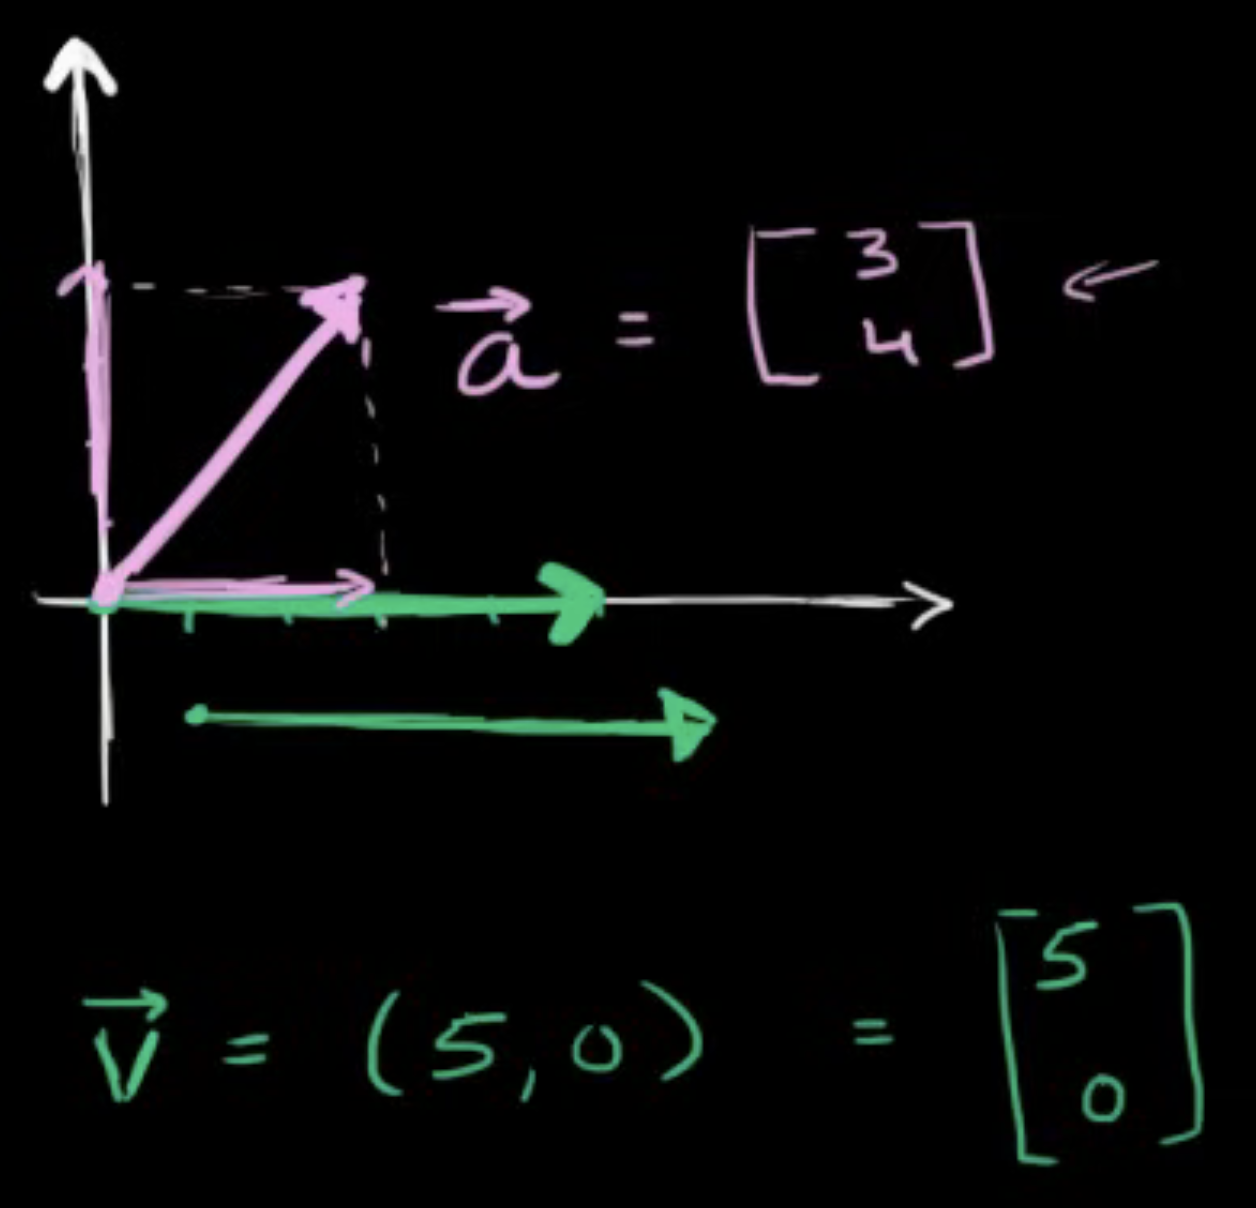 a⃗ = [3
4]
v⃗ = (5, 0) = [5
0]